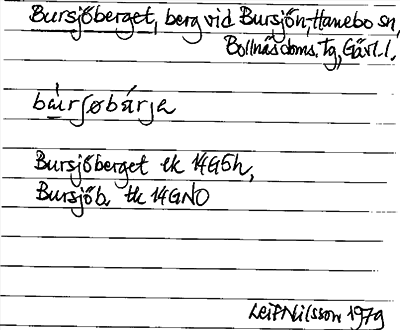 Bursjöberget, berg vid Bursjön, Hanebo sn,
Bollnäs doms. tg, Gävl. l.
bu̇rʃøbárja
Bursjöberget ek 14G5h,
Bursjöb. tk 14GNO
Leif Nilsson 1979